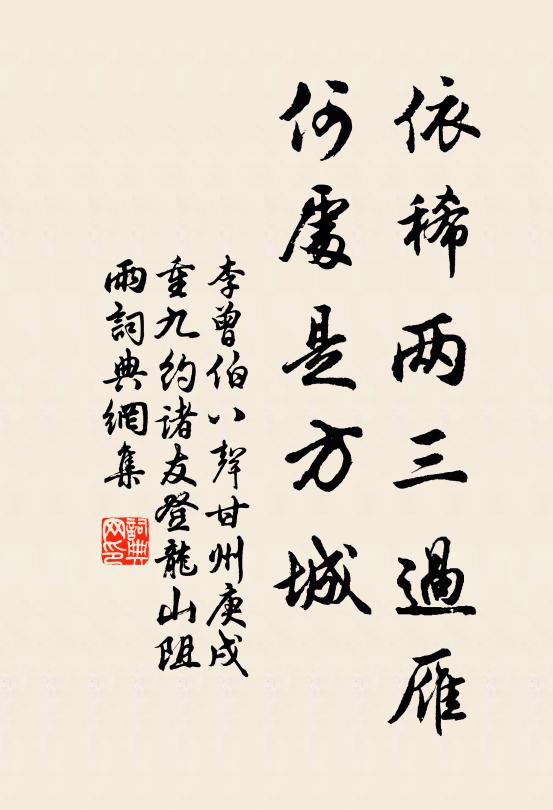 依稀两三過雁
何處是方城
李曾伯八聲甘州庚戌
重九約諸友登龍山阻
雨詞典網集
詞典网印